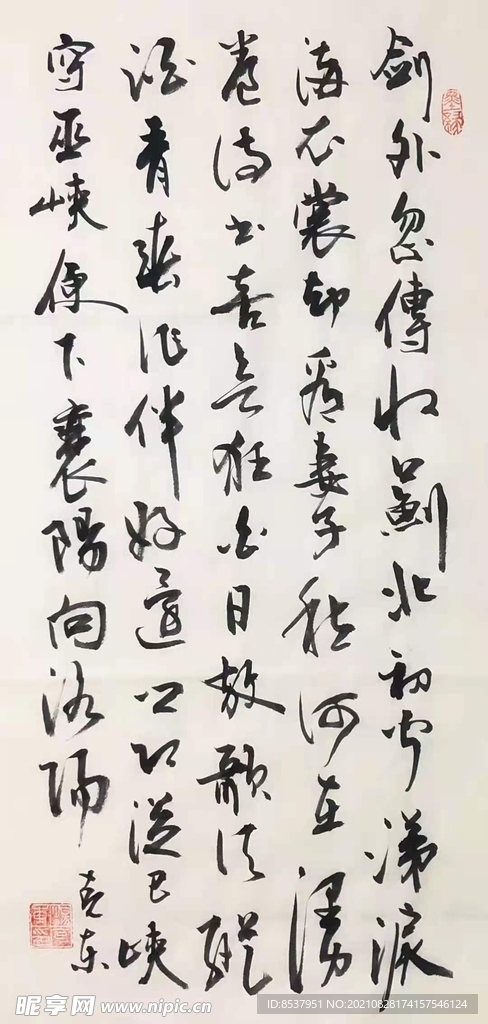 劍外忽傳收薊北初聞涕淚
滿衣裳却看妻子愁何在漫
卷詩書喜欲狂白日放歌須縱
酒青春作伴好還鄉即從巴峽
穿巫峽便下襄陽向洛陽
克东
昵享网 www.nipic.cn
ID:8537951 NO:20210828174157546124